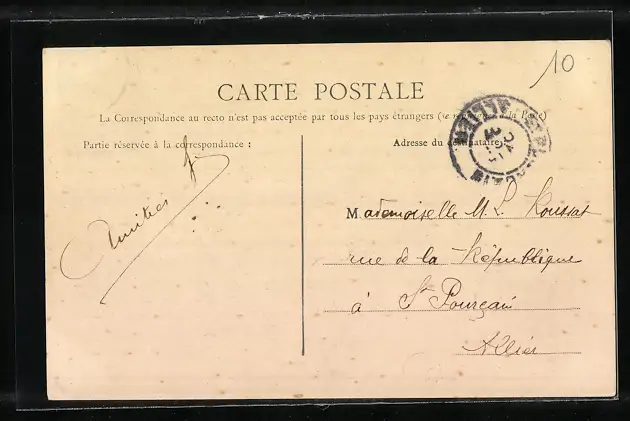 10
CARTE POSTALE
La Correspondance au recto n'est pas acceptée par tous les pays étrangers (se à la Poste)
Partie réservée à la correspondance :
Adresse du destinataire
Amitiés
Mademoiselle M. L. Roussat
rue de la République
à St Pourçain
Allier